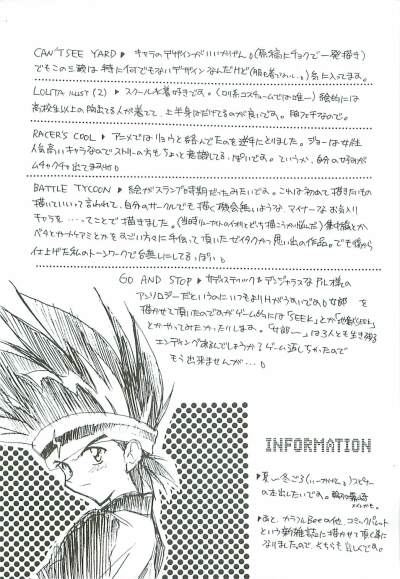 CAN'T SEE YARD ▶ キャラのデザインがいいかげん。(原稿にチョクで一発描き)
でもこの三戦は特に何でもないデザインなんだけど(服も着てないし。)気に入ってます。
LOLITA ILLUST (2) ▶ スクール水着好きです。(ロリ系コスチュームでは唯一)絵的には
高校生以上の胸出てる人が着てて、上半身はだけてるのが良いです。胸フェチなので。
RACER'S COOL ▶ アニメではリョウと絡んでたのを逆手にとりました。ジョーは女性
人気高いキャラなのでストーリーの方もちょっと意識してる。っぽいです。というか、自分の好みが
ムチャクチャ出てますね
BATTLE TYCOON ▶ 絵がスランプな時期だったみたいです。これは初めて描きたいもの
描いていいって言われて、自分のサークルでも描く機会無いような、マイナーなお気入り
キャラを・・・ってことで描きました。
ベタとかケムケアミとかをすごい方々に手伝って頂いたゼイタクかつ思い出の作品。でも後から
仕上げた私のトーンワークで台無しにしてる。っぽい。
GO AND STOP ▶ サディスティック&デンジャラスな
アンソロジーだというのにいつもよりHがうすいです。女部 を
描かせて頂いたのですがゲーム的には「SEEK」とか「地獄SEEK」
とかやってみたかったりします。「女郎〜」は3人とも生き残る
エンディングあるんでしょうか?ゲーム返しちゃったので
もう出来ませんが・・・
INFORMATION
▶ 夏〜冬ごろ(いーかげん。)コピー
の本出したいです。
▶ あと、カラフルBeeの他、コミックパレット
という新雑誌に描かせて頂く事に
なりましたので、そちらも宜しくです。